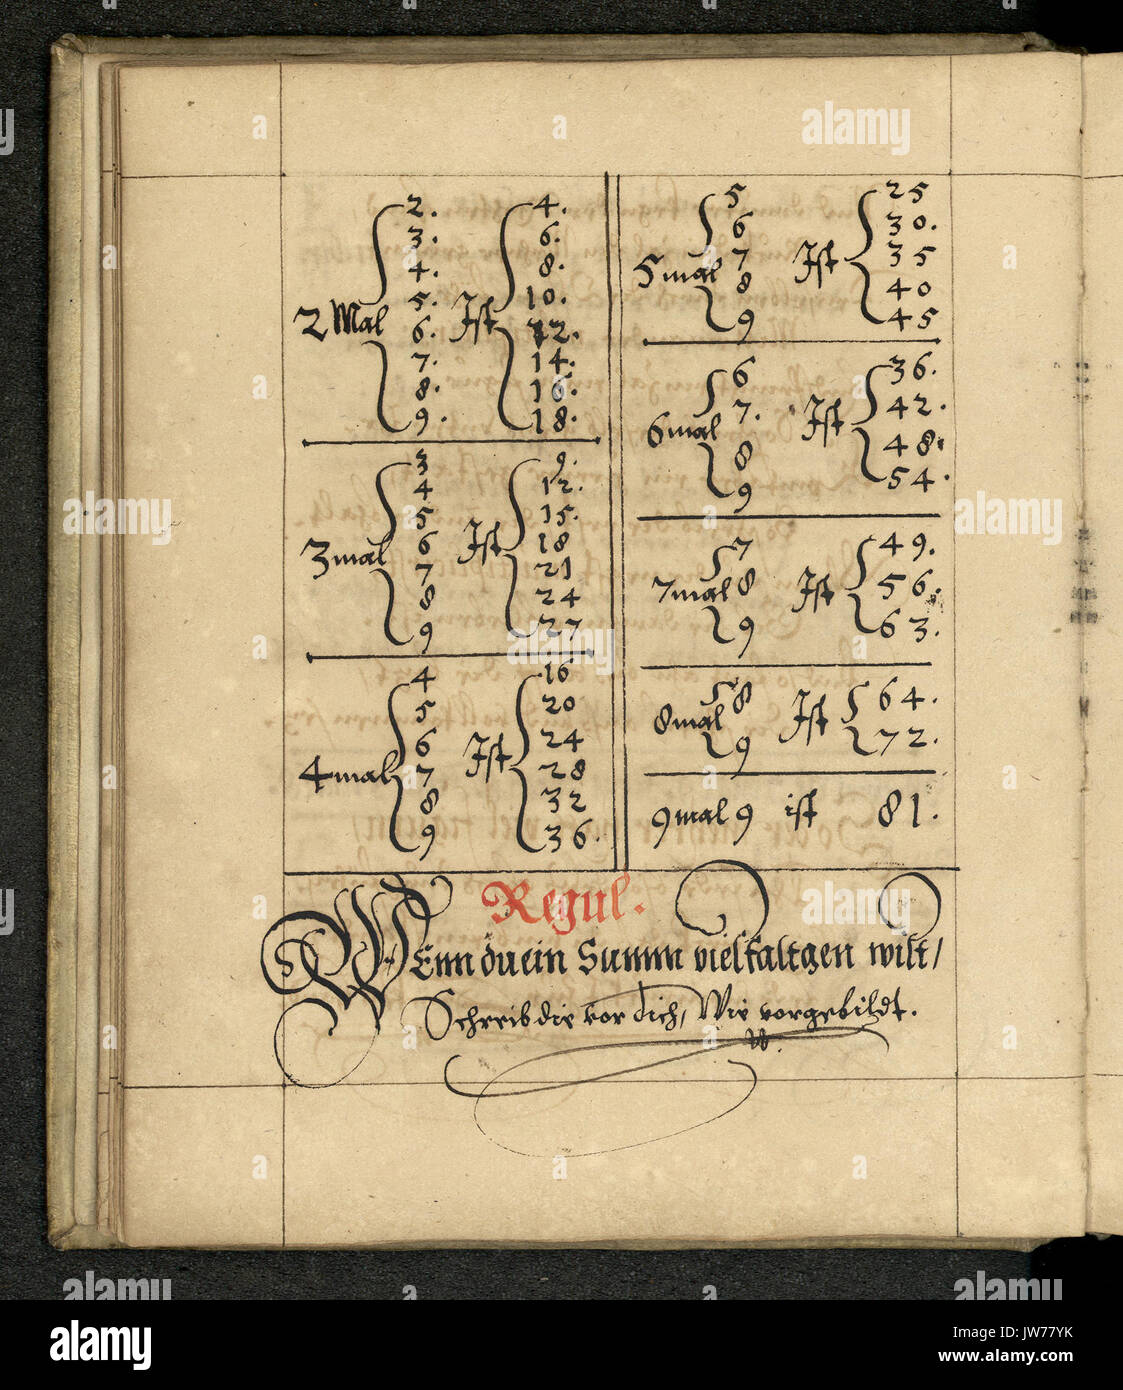 2.	4.
3.	6.
4.	8.
5.	10.
2 Mal 6. Ist 12.
7.	14.
8.	16.
9.	18.
3	9.
4	12.
5	15.
6	18
3 mal 7 Ist 21
8	24
9	27
4	16
5	20
6	24
4 mal 7 Ist 28
8	32
9	36.
5	25
6	30.
5 mal 7 Ist 35
8	40
9	45
6	36.
6 mal 7. Ist 42.
8	48.
9	54.
7	49.
7 mal 8 Ist 56.
9	63.
8 mal 8 Ist 64.
9	72.
9 mal 9 ist 81.
Regul.
WEnn du ein Summ vielfaltgen wilt,
Schreib die vor dich, Wie vorgebildt.
alamy stock photo
Image ID: JW77YK
www.alamy.com